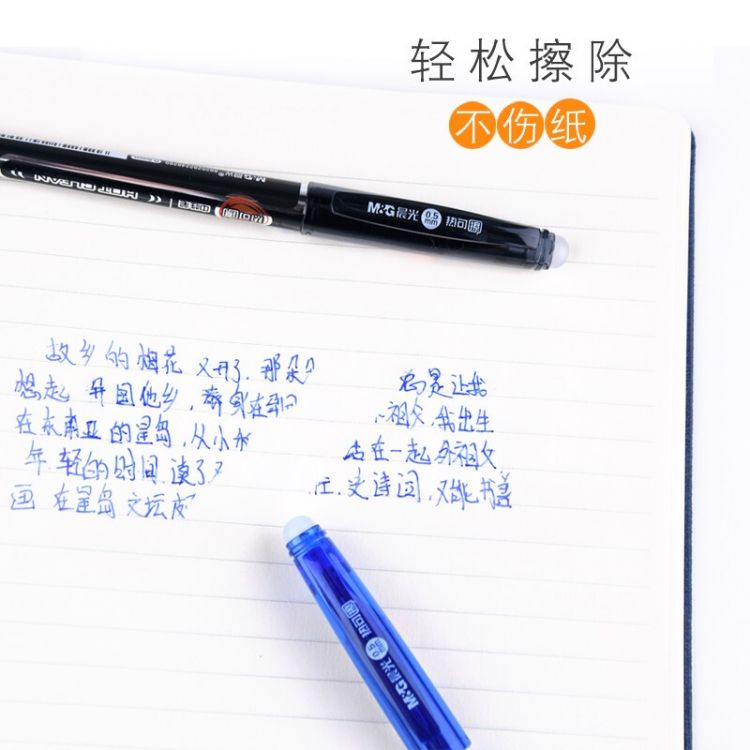 轻松擦除
不伤纸
M&G晨光 0.5mm 热可擦
HOT CLEAN
M&G晨光 0.5mm 热可擦
故乡的烟花 又开了,那朵
想起 异国他乡,
在东南亚的星岛,从小
年轻的时间,读了
画 在星岛文坛
是让我
祖父,我出生
在一起 外祖父
史诗词,又能书善